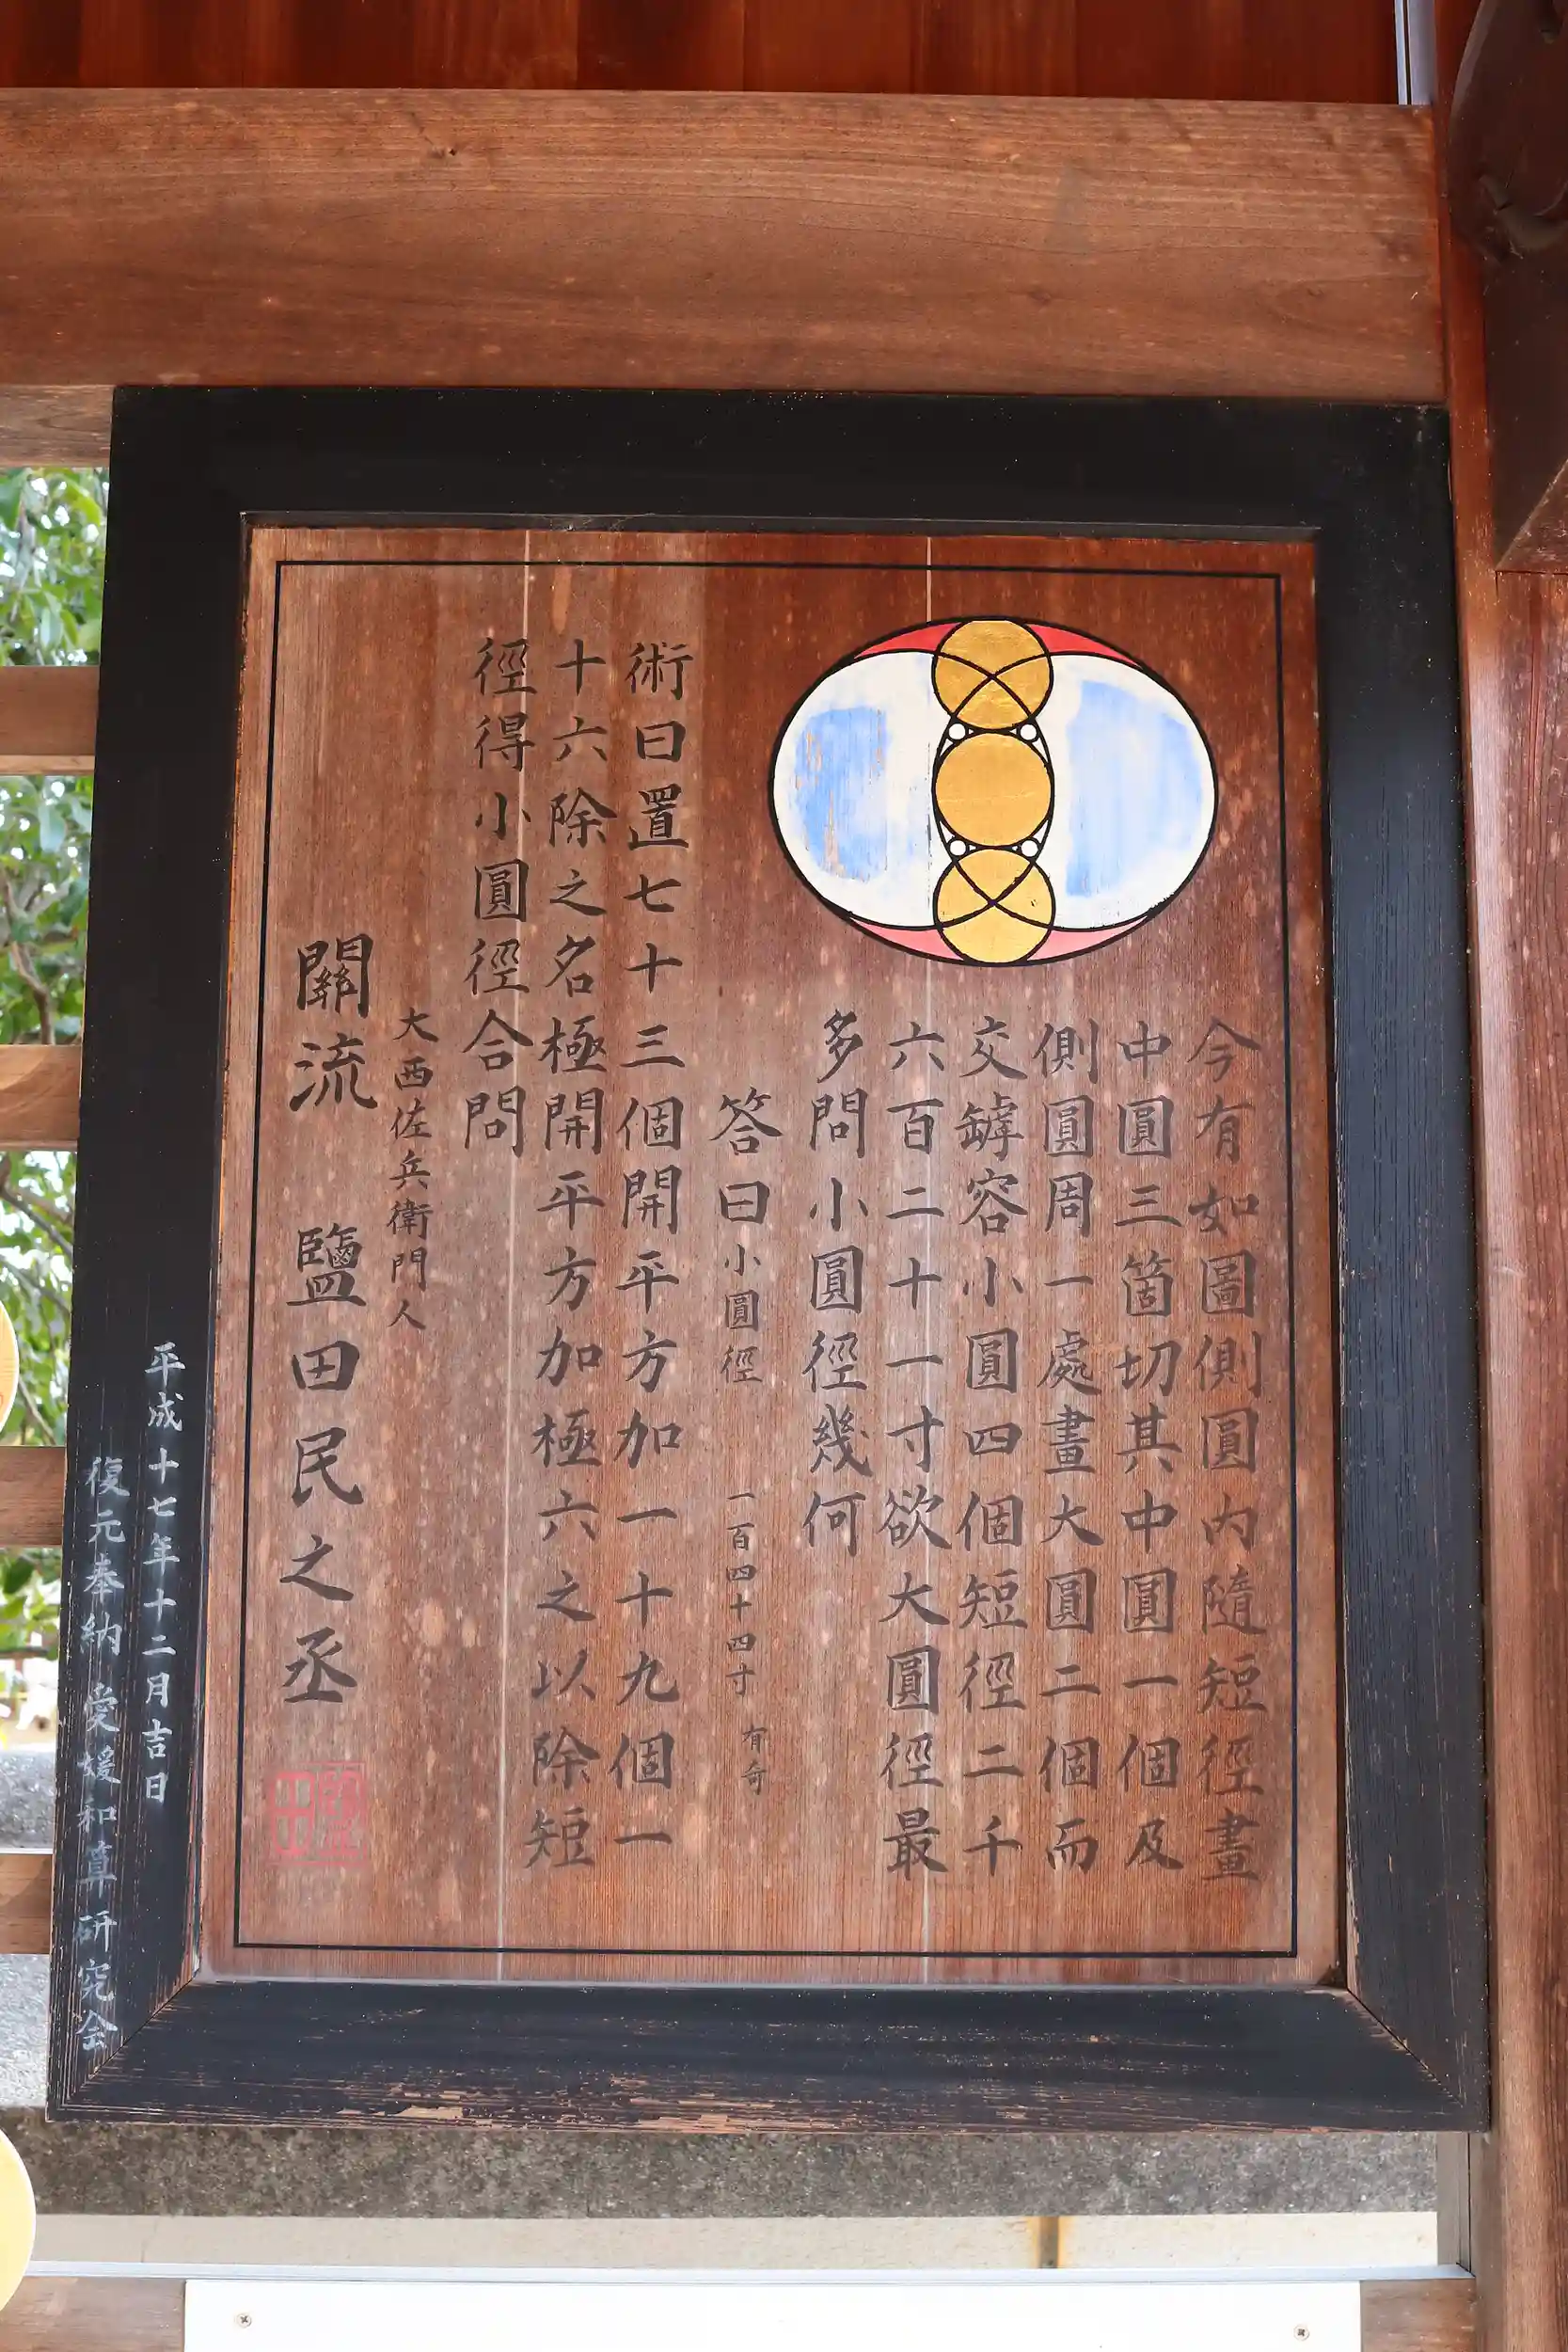 今有如圖側圓内隨短徑畫
中圓三箇切其中圓一個及
側圓周一處畫大圓二個而
交罅容小圓四個短徑二千
六百二十一寸欲大圓徑最
多問小圓徑幾何
答曰小圓徑 一百四十四寸 有奇
術曰置七十三個開平方加一十九個一
十六除之名極開平方加極六之以除短
徑得小圓徑合問
大西佐兵衛門人
關流 鹽田民之丞
平成十七年十二月吉日
復元奉納 愛媛和算研究会